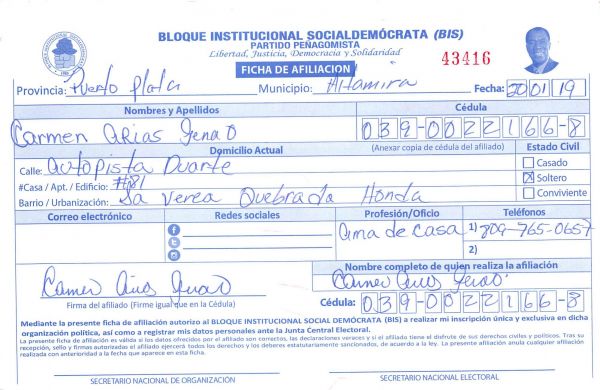 BLOQUE INSTITUCIONAL SOCIALDEMÓCRATA (BIS)
PARTIDO PEÑAGOMISTA
Libertad, Justicia, Democracia y Solidaridad
43416
FICHA DE AFILIACION
Provincia: Puerto Plata Municipio: Altamira Fecha: 20 01 19
Nombres y Apellidos Cédula
Carmen Arias Genao 039-0022166-8
Domicilio Actual (Anexar copia de cédula del afiliado) Estado Civil
Calle: Autopista Duarte Casado
#Casa / Apt. / Edificio: #81 Soltero
Barrio / Urbanización: La Verea Quebrada Honda Conviviente
Correo electrónico Redes sociales Profesión/Oficio Teléfonos
ama de casa 1) 809-765-0657
2)
Carmen Arias Genao Nombre completo de quien realiza la afiliación
Carmen Arias Genao
Firma del afiliado (Firme igual que en la Cédula) Cédula: 039-0022166-8
Mediante la presente ficha de afiliado autorizo al BLOQUE INSTITUCIONAL SOCIAL DEMÓCRATA (BIS) a realizar mi inscripción única y exclusiva en dicha
organización política, así como a registrar mis datos personales ante la Junta Central Electoral.
La presente ficha de afiliación es válida si los datos ofrecidos por el afiliado son correctos, las declaraciones veraces y si el afiliado tiene el disfrute de sus derechos civiles y políticos. Tras su
recepción, sello y firmas autorizadas el afiliado ejercerá todos los derechos y los deberes estatutariamente sancionados, de acuerdo a la ley. La presente afiliación anula cualquier afiliación
realizada con anterioridad a la fecha que aparece en esta ficha.
SECRETARIO NACIONAL DE ORGANIZACIÓN SECRETARIO NACIONAL ELECTORAL